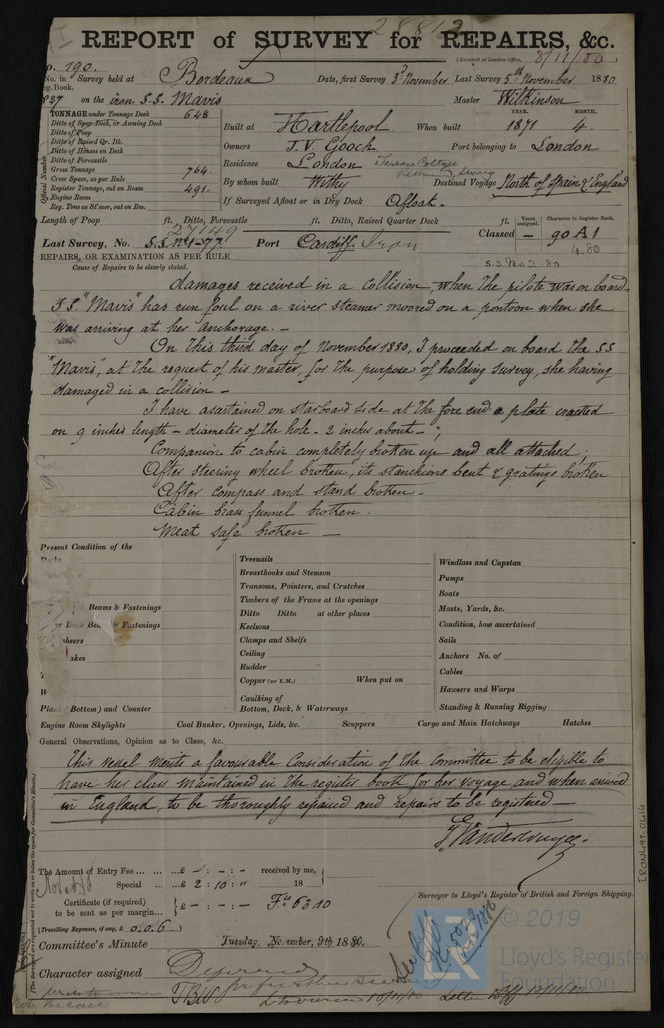 28812
REPORT of SURVEY for REPAIRS, &c.
(Received at London Office, 8/11/80
No. 190.
No. in Survey held at Bordeaux Date, first Survey 3d November Last Survey 5th November 1880
Reg. Book.
827 on the iron S.S. Mavis Master Wilkinson
TONNAGE under Tonnage Deck 648
Ditto of Spar Deck, or Awning Deck
Ditto of Poop
Ditto of Raised Qr. Dk.
Ditto of Houses on Deck
Ditto of Forecastle
Gross Tonnage 764
Crew Space, as per Rule
Register Tonnage, cut on Beam 491
Engine Room
Reg. Tons as St'mer, cut on Bm.
Official Number
YEAR. MONTH.
Built at Hartlepool When built 1871 4.
Owners J. V. Gooch Port belonging to London
Residence London
By whom built Withy Destined Voyage North of Spain & England
If Surveyed Afloat or in Dry Dock Afloat.
Length of Poop ft. Ditto, Forecastle ft. Ditto, Raised Quarter Deck ft.
Years assigned. Character in Register Book.
27149
Last Survey, No. S.S. No 1-77 Port Cardiff Iron Classed — 90 A 1
4.80
S.S. No 2. 80
REPAIRS, OR EXAMINATION AS PER RULE
Cause of Repairs to be clearly stated.
damages received in a collision, when the pilote was on board.
S.S. "Mavis" has run foul on a river steamer moored on a pontoon when she
was arriving at her anchorage. —
On this third day of November 1880, I proceeded on board the S.S
"Mavis", at the request of his master, for the purpose of holding survey, she having
damaged in a collision —
I have asartained on starboard side at the fore end a plate cracted
on 9 inches length — diameter of the hole - 2 inches about — ;
Companion to cabin completely broken up and all attached ;
After steering wheel broken, its stanchions bent & gratings broken
After compass and stand broken —
Cabin brass funnel broken .
Meat safe broken —
Present Condition of the
Beams & Fastenings
Deck Beams & Fastenings
Planking (Bottom) and Counter
Engine Room Skylights
Treenails
Breasthooks and Stemson
Transoms, Pointers, and Crutches
Timbers of the Frame at the openings
Ditto Ditto at other places
Keelsons
Clamps and Shelfs
Ceiling
Rudder
Copper (or Y.M.) When put on
Caulking of
Bottom, Deck, & Waterways
Windlass and Capstan
Pumps
Boats
Masts, Yards, &c.
Condition, how ascertained
Sails
Anchors No. of
Cables
Hawsers and Warps
Standing & Running Rigging
Coal Bunker, Openings, Lids, &c. Scuppers Cargo and Main Hatchways Hatches
General Observations, Opinion as to Class, &c.
This vessel merite a favourable Consideration of the Committee to be eligible to
have her class maintained in the register book for her voyage, and when arrived
in England, to be thoroughly repaired and repairs to be registered —
The Amount of Entry Fee ... ... ...£ - : - : - received by me,
Special ... ...£ 2 : 10 : " 18
Certificate (if required) ...£ - : - : -
to be sent as per margin...
Fcs 63.10
(Travelling Expenses, if any, £ 0.0.6 )
Surveyor to Lloyd's Register of British and Foreign Shipping.
Committee's Minute Tuesday, November, 9th 1880.
Character assigned Deferred
for further survey
TBW
IRON697-0414
LR © 2019
Lloyd's Register
Foundation